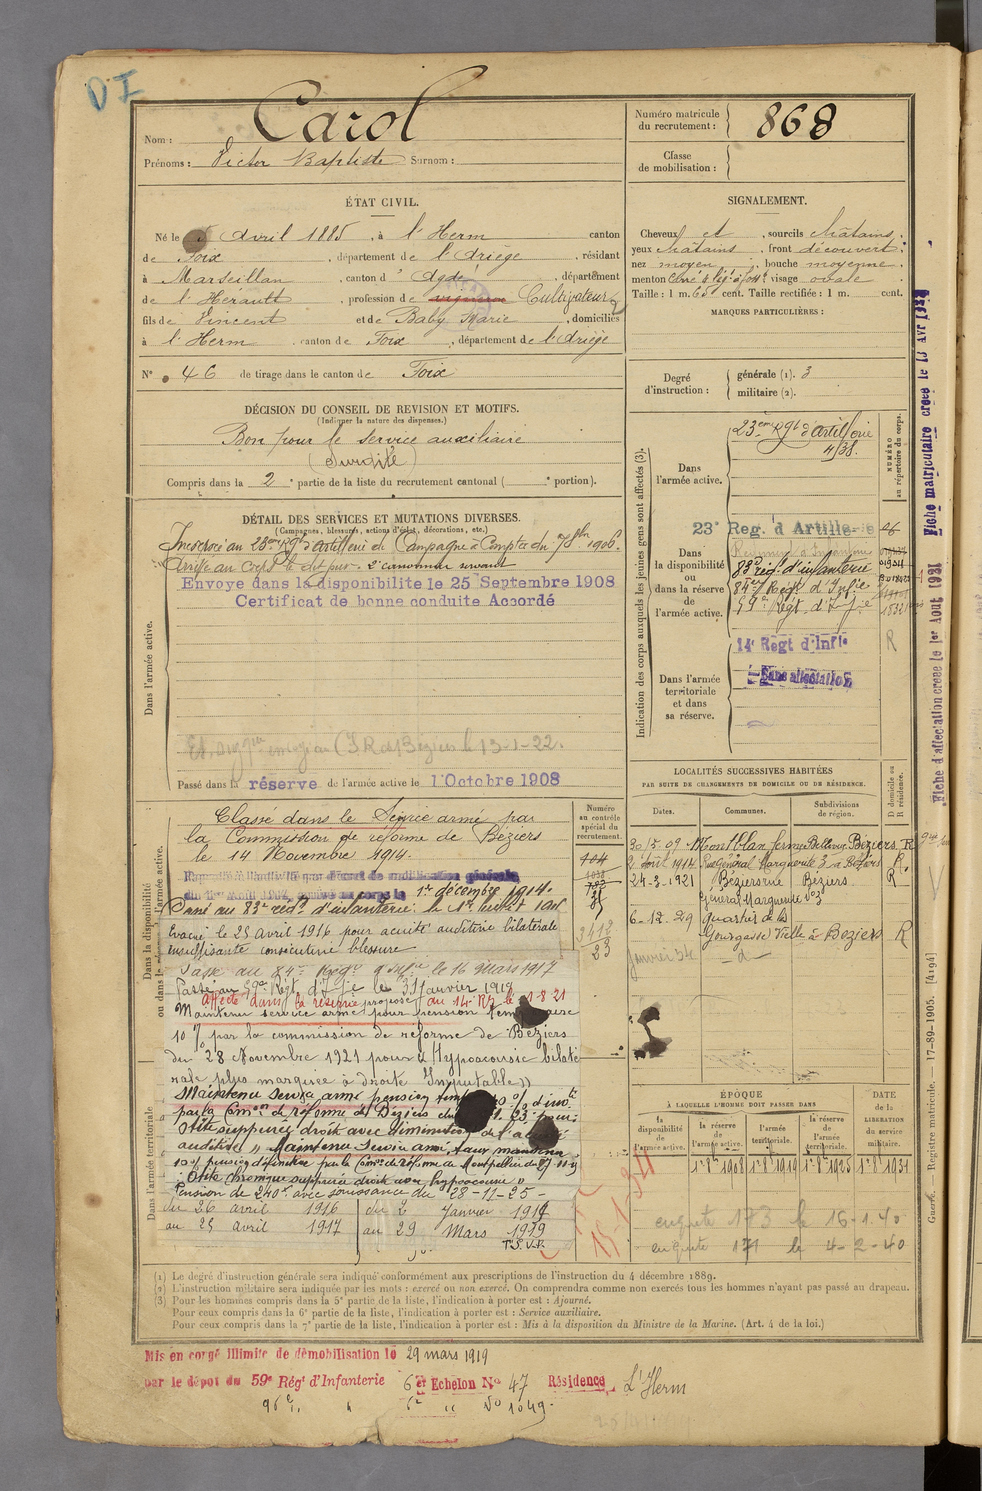 DI
Nom : Carol
Prénoms : Victor Baptiste Surnom :
Numéro matricule du recrutement : 868
Classe de mobilisation :
ÉTAT CIVIL.
Né le 5 Avril 1885, à l'Herm canton
de Foix, département de l'Ariège, résidant
à Marseillan, canton d' Agde, département
de l'Hérault, profession de vigneron Cultivateur
fils de Vincent et de Baby Marie, domiciliés
à l'Herm, canton de Foix, département de l'Ariège
N° 46 de tirage dans le canton de Foix
SIGNALEMENT.
Cheveux et, sourcils châtains.
yeux châtains, front découvert.
nez moyen, bouche moyenne.
menton visage ovale
Taille : 1 m. 65 cent. Taille rectifiée : 1 m. cent.
MARQUES PARTICULIÈRES :
Degré d'instruction :
générale (1). 3
militaire (2).
DÉCISION DU CONSEIL DE REVISION ET MOTIFS.
(Indiquer la nature des dispenses.)
Bon pour le service auxiliaire
(Surdité)
Compris dans la 2e partie de la liste du recrutement cantonal ( e portion).
DÉTAIL DES SERVICES ET MUTATIONS DIVERSES.
(Campagnes, blessures, actions d'éclat, décorations, etc.)
Incorporé au 23em Rgt d'artillerie de Campagne à Compter du 7 8bre 1906.
Arrivé au corps le dit jour. 2e canonnier servant
Envoyé dans la disponibilite le 25 Septembre 1908
Certificat de bonne conduite Accordé
Dans l'armée active.
de Béziers le 13-1-22.
Passé dans la réserve de l'armée active le 1 Octobre 1908
Indication des corps auxquels les jeunes gens sont affectés (3).
NUMÉRO au répertoire du corps.
Dans l'armée active.
23em Rgt d'Artillerie
4/38.
Dans la disponibilité ou dans la réserve de l'armée active.
23e Reg. d'Artillerie
83e rég. d'infanterie
84e Régt d'Infie
59e Régt d'Infie
R
Dans l'armée territoriale et dans sa réserve.
14e Regt d'Infie
Sans affectation
Fiche matriculaire créée le 13 Avr
Fiche d'affectation créée le 1er Aout 1931
Dans la disponibilité ou dans la réserve de l'armée active.
Classé dans le Service armé par
la Commission de réforme de Béziers
le 14 Novembre 1914.
1er décembre 1914.
Passé au 83e rég. d'infanterie le 1er juillet 1915
Evacué le 25 avril 1916 pour acuité auditive bilatérale
insuffisante consécutive blessure
Passé au 84e Régt d'Infie le 16 Mars 1917
Passé au 59e Régt d'Infie le 31 Janvier 1918
Affecté dans la réserve au 14e RI le 1-8-21
Maintenu service armé proposé pour pension temporaire
10 % par la commission de réforme de Béziers
du 28 Novembre 1921 pour "Hypoacousie bilaté
rale plus marquée à droite Imputable"
Maintenu service armé pension temp. 10 % d'invté
par la Comon de réforme de Béziers du 23 pour :
Otite suppurée droite avec diminution de l'acuité
auditive " Maintenu service armé, taux maintenu
10 % pension définitive par la Comon de réforme de Montpellier du 27-11-25
" Otite chronique suppurée droite avec hypoacousie "
Pension de 240f avec jouissance du 28-11-25 -
du 26 avril 1916 du 2 Janvier 1918
au 25 avril 1917 au 29 Mars 1919
T.S.V.P.
Dans l'armée territoriale
Numéro au contrôle spécial du recrutement.
104
1038
783
3412
23
LOCALITÉS SUCCESSIVES HABITÉES
PAR SUITE DE CHANGEMENTS DE DOMICILE OU DE RÉSIDENCE.
D domicile ou R résidence.
Dates. Communes. Subdivisions de région.
30/5 09 Montblan ferme Bellevue Béziers R
2 Août 1914 Rue Général Marguerite 3 à Béziers R
24-3-1921 Béziers rue Béziers R
Général Marguerite n° 3
6-12-29 quartier de la
Gourgasse Vieille à Béziers R
Janvier 34 - d° -
ÉPOQUE
À LAQUELLE L'HOMME DOIT PASSER DANS
la disponibilité de l'armée active.
la réserve de l'armée active.
l'armée territoriale.
la réserve de l'armée territoriale.
DATE de la LIBÉRATION du service militaire.
1er 8bre 1908 1er 8bre 1919 1er 8bre 1925 1er 8bre 1931
enquête 173 le 16-1.40
enquete 171 le 4-2-40
Guerre. — Registre matricule. — 17-89-1905. [4194]
(1) Le degré d'instruction générale sera indiqué conformément aux prescriptions de l'instruction du 4 décembre 1889.
(2) L'instruction militaire sera indiquée par les mots : exercé ou non exercé. On comprendra comme non exercés tous les hommes n'ayant pas passé au drapeau.
(3) Pour les hommes compris dans la 5e partie de la liste, l'indication à porter est : Ajourné.
Pour ceux compris dans la 6e partie de la liste, l'indication à porter est : Service auxiliaire.
Pour ceux compris dans la 7e partie de la liste, l'indication à porter est : Mis à la disposition du Ministre de la Marine. (Art. 4 de la loi.)
Mis en congé illimité de démobilisation le 29 mars 1919
par le dépot du 59e Régt d'Infanterie 6e Echelon No 47 Résidence L'Herm
96e " " 6e " No 1049.